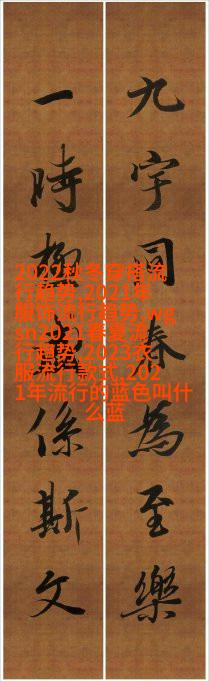 九宇同春為至樂
一時係斯文
2022秋冬穿搭流
行趋势,2021年
服饰流行趋势,wg
sn2021春夏流
行趋势,2023衣
服流行款式,202
1年流行的蓝色叫什
么蓝